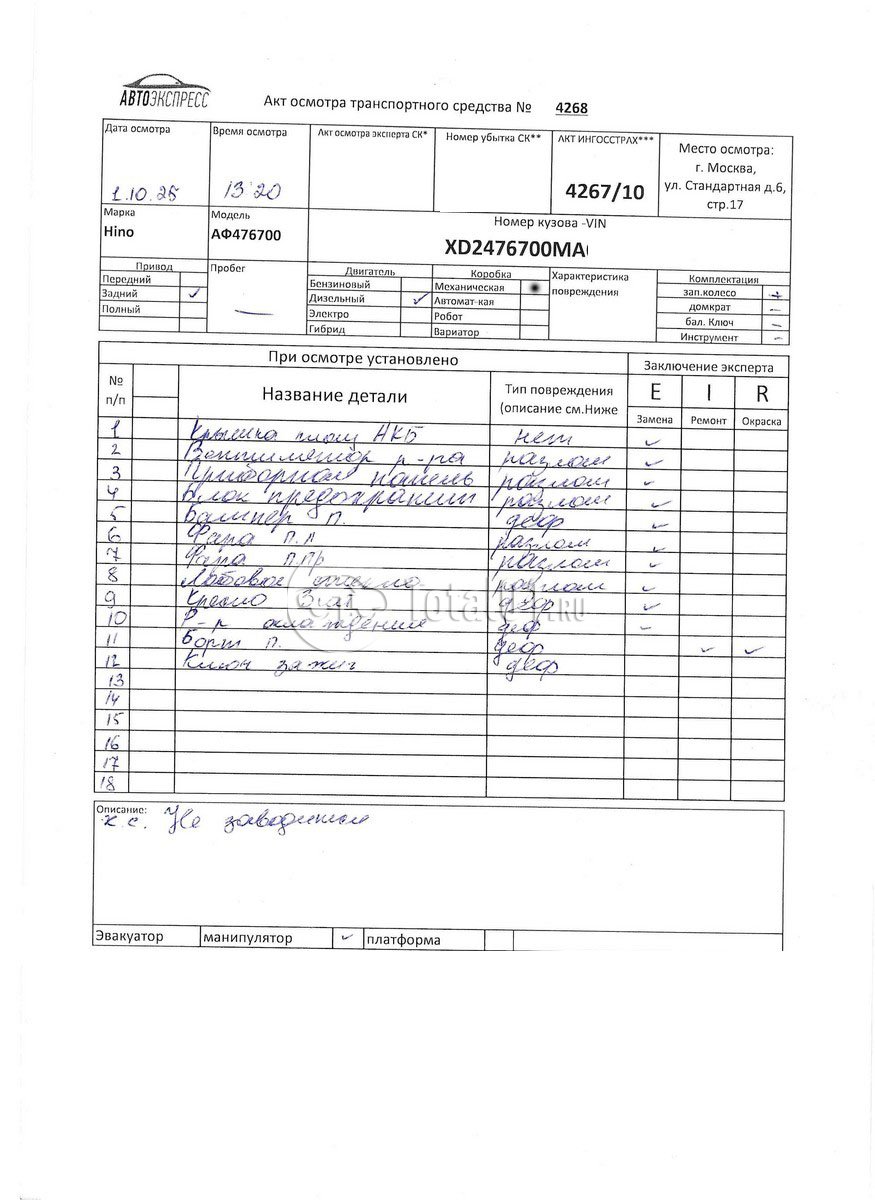 АВТОЭКСПРЕСС
Акт осмотра транспортного средства № 4268
Дата осмотра Время осмотра Акт осмотра эксперта СК* Номер убытка СК** АКТ ИНГОССТРАХ*** Место осмотра:
г. Москва,
1.10.25 13 20 4267/10 ул. Стандартная д.6,
стр.17
Марка Модель Номер кузова -VIN
Hino АФ476700 XD2476700MA
Привод Пробег Двигатель Коробка Характеристика Комплектация
Передний Бензиновый Механическая повреждения зап.колесо +
Задний ✓ — Дизельный ✓ Автомат-кая домкрат –
Полный Электро Робот бал. Ключ –
Гибрид Вариатор Инструмент –
При осмотре установлено Заключение эксперта
№ п/п Название детали Тип повреждения (описание см.Ниже E I R
Замена Ремонт Окраска
1 Крышка площ АКБ нет ✓
2 Вентилятор р-ра разлом ✓
3 Приборная панель разлом ✓
4 Блок предохранит разлом ✓
5 Бампер П. деф ✓
6 Фара П.Л разлом ✓
7 Фара П.Пр разлом ✓
8 Лобовое стекло разлом ✓
9 Кресло деф ✓
10 Р-р охлаждения деф ✓
11 Борт П. деф ✓ ✓
12 Ключ зажиг деф
13
14
15
16
17
18
Описание:
к.с. Не заводится
Эвакуатор манипулятор ✓ платформа
Total01.RU